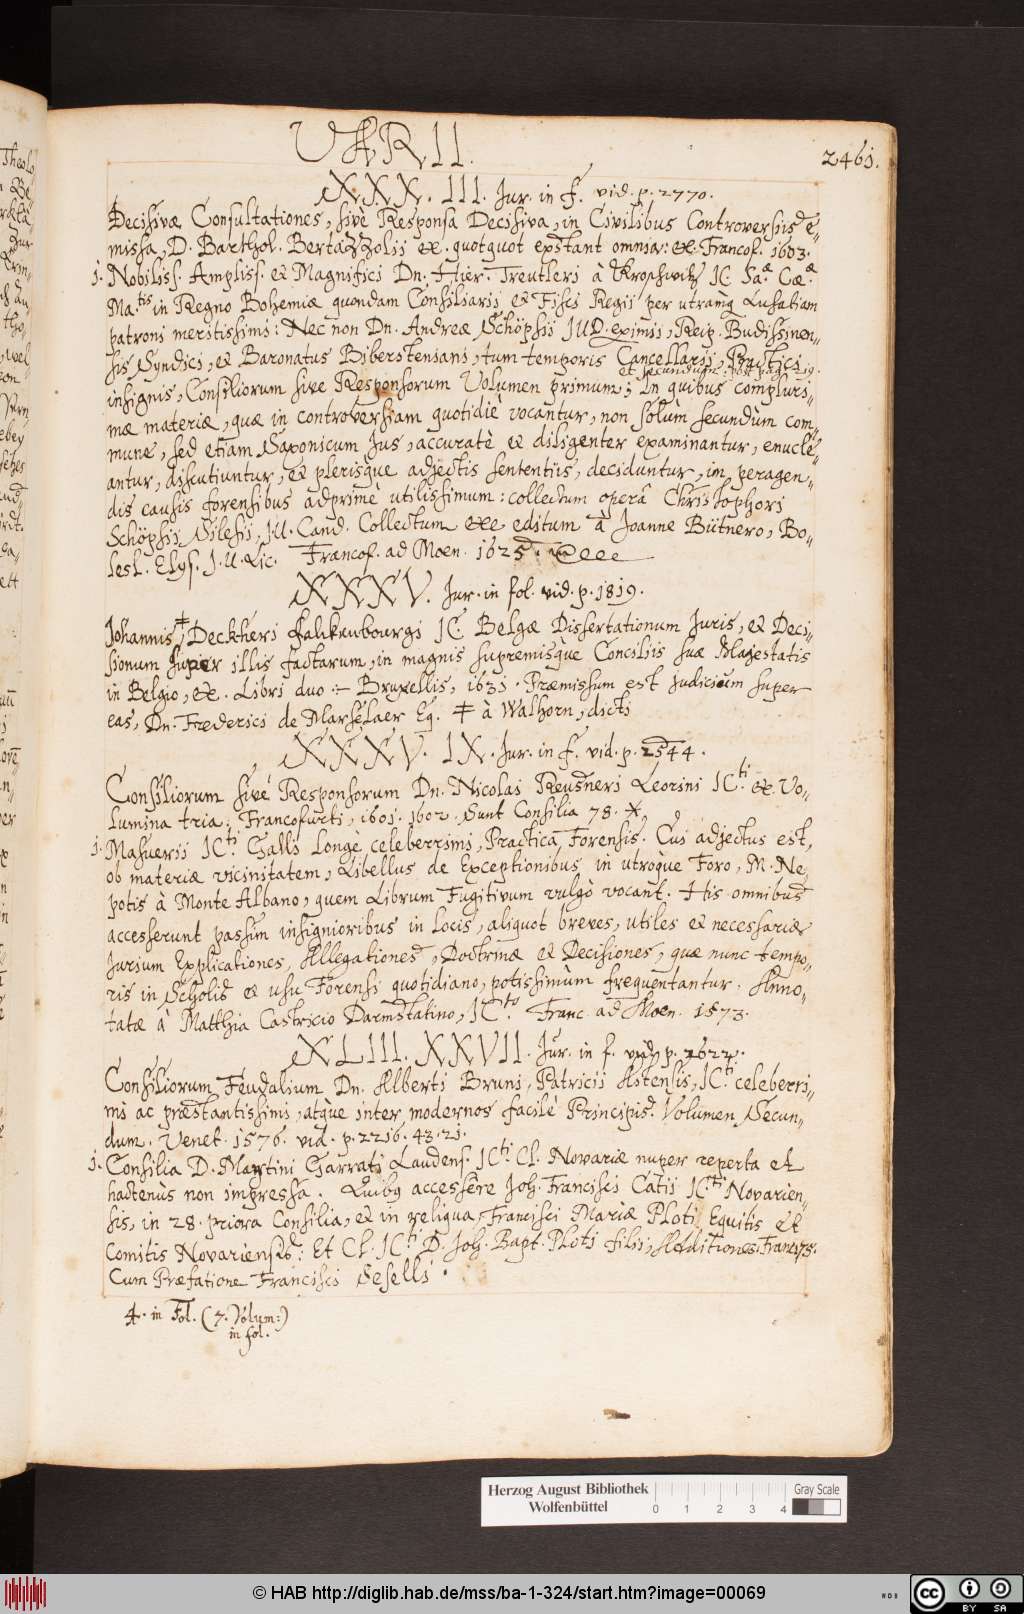 VARII.
2461.
XXX. III. Jur. in f. vid. p. 2770.
Decisivæ Consultationes, sive Responsa Decisiva, in Civilibus Controversiis e„
missa, D. Barthol. Bertazzolii ec. quotquot exstant omnia: ec. Francof. 1603.
j. Nobiliss. Ampliss. et Magnifici Dn. Hier. Treutleri à Kroschwitz IC Sa.æ Cæ.æ
Ma.tis in Regno Bohemiæ quondam Consiliarii et Fisci Regii per utramq Lusatiam
patroni meritissimi: Nec non Dn. Andreæ Schöpsii IUD. eximii, Reip. Budissinen„
sis Syndici, et Baronatus Bibersteniani, tum temporis Cancellarii, Practici
et secundum: post pag. 519.
insignis, Consiliorum sive Responsorum Volumen primum; In quibus compluri„
mæ materiæ, quæ in controversiam quotidiè vocantur, non solùm secundùm com„
mune, sed etiam Saxonicum Jus, accuratè et diligenter examinantur, enucle„
antur, discutiuntur, et plerisque adjectis sententiis, deciduntur, in peragen„
dis causis forensibus adprimè utilissimum: collectum operâ Christophori
Schöpsii Silesii, IU. Cand. Collectum editum à Joanne Bütnero, Bo„
lesl. Elys. J. U. Lic. Francof. ad Moen. 1625.
XXXV. Jur. in fol. vid. p. 1819.
Johannis ‡ Deckheri Falckenbourgi IC. Belgæ Dissertationum Juris, et Deci„
sionum super illis factarum, in magnis supremisque Conciliis suæ Majestatis
in Belgio, ec. Libri duo Bruxellis, 1631. Præmissum est Judicium super
eas, Dn. Frederici de Marselaer Eq. ‡ à Walhorn, dicti
XXXV. IX. Jur. in f. vid. p. 2544.
Consiliorum sivé Responsorum Dn. Nicolai Reusneri Leorini ICti. ec. Vo„
lumina tria; Francofurti, 1601. 1602. Sunt Consilia 78.
j. Masuerii ICti. Galli Longè celeberrimi, Practica Forensis. Cui adjectus est,
ob materiæ vicinitatem, Libellus de Exceptionibus in utroque Foro, M. Ne„
potis à Monte Albano, quem Librum Fugitivum vulgò vocant. His omnibus
accesserunt passim insignioribus in locis, aliquot breves, utiles et necessariæ
Jurium Explicationes, Allegationes, Doctrinæ et Decisiones, quæ nunc tempo„
ris in Scholis et usu Forensi quotidiano, potissimùm frequentantur. Anno„
tatæ à Matthia Castricio Darmstatino, ICto. Franc. ad Moen. 1573.
XLIII. XXVII. Jur. in f. vid. p. 2622.
Consiliorum Feudalium Dn. Alberti Bruni, Patricii Astensis, ICti. celeberri„
mi ac præstantissimi, atque inter modernos facilè Principis. Volumen Secun„
dum. Venet. 1576. vid. p. 2216. 43. 21.
j. Consilia D. Martini Garrati Laudens. ICti. Cl. Novariæ nuper reperta et
hactenùs non impressa. Quibq accessêre Joh. Francisci Catii ICti Novarien„
sis, in 28. priora Consilia, et in reliqua, Francisci Mariæ Ploti Equitis et
Comitis Novariensis: Et Cl. ICti D. Joh. Bapt. Ploti filii, Additiones. Franc. 75.
Cum Præfatione Francisci Seselli.
4. in Fol. (7. Volum:)
in fol.
Herzog August Bibliothek
Wolfenbüttel
0 1 2 3 4
Gray Scale
© HAB http://diglib.hab.de/mss/ba-1-324/start.htm?image=00069
cc BY SA